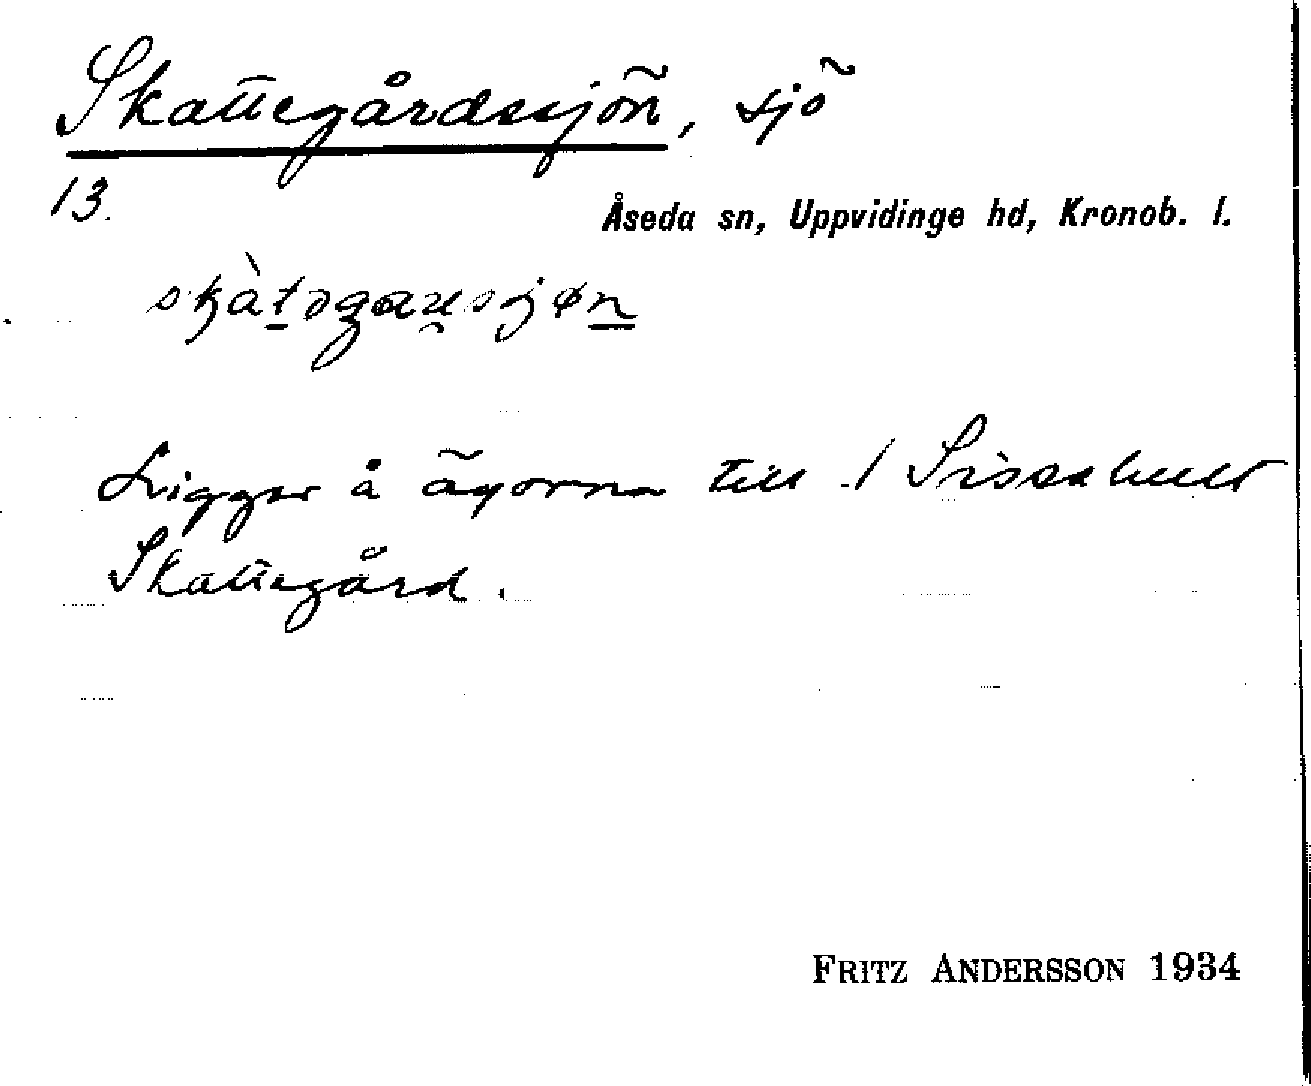 Skattegårdssjön, sjö
13.
Åseda sn, Uppvidinge hd, Kronob. l.
Ligger å ägorna till 1 Sissehult
Skattegård.
FRITZ ANDERSSON 1934